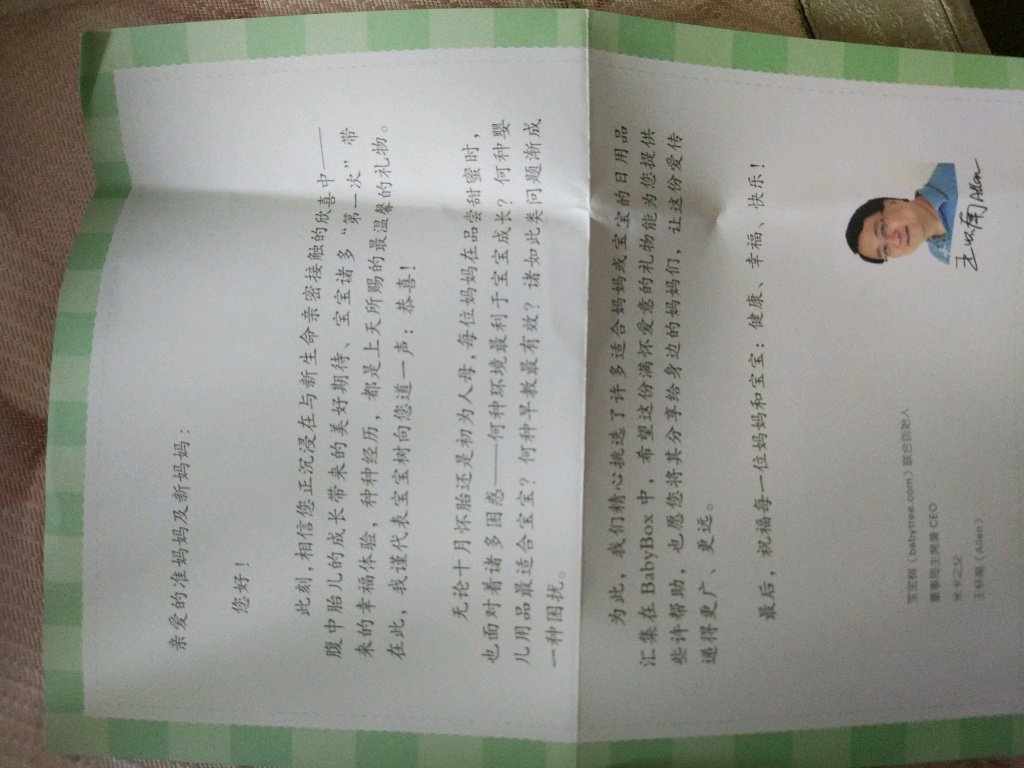 亲爱的准妈妈及新妈妈：
您好！
此刻，相信您正沉浸在与新生命亲密接触的欣喜中——
腹中胎儿的成长带来的美好期待、宝宝诸多“第一次”带
来的幸福体验，种种经历，都是上天所赐的最温馨的礼物。
在此，我谨代表宝宝树向您道一声：恭喜！
无论十月怀胎还是初为人母，每位妈妈在品尝甜蜜时，
也面对着诸多困惑——何种环境最利于宝宝成长？何种婴
儿用品最适合宝宝？何种早教最有效？诸如此类问题渐成
一种困扰。
为此，我们精心挑选了许多适合妈妈或宝宝的日用品
汇集在 BabyBox 中，希望这份满怀爱意的礼物能为您提供
些许帮助，也愿您将其分享给身边的妈妈们，让这份爱传
递得更广、更远。
最后，祝福每一位妈妈和宝宝：健康、幸福、快乐！
王怀南 Allen
宝宝树（babytree.com）联合创始人
董事局主席兼 CEO
米卡之父
王怀南（Allen）